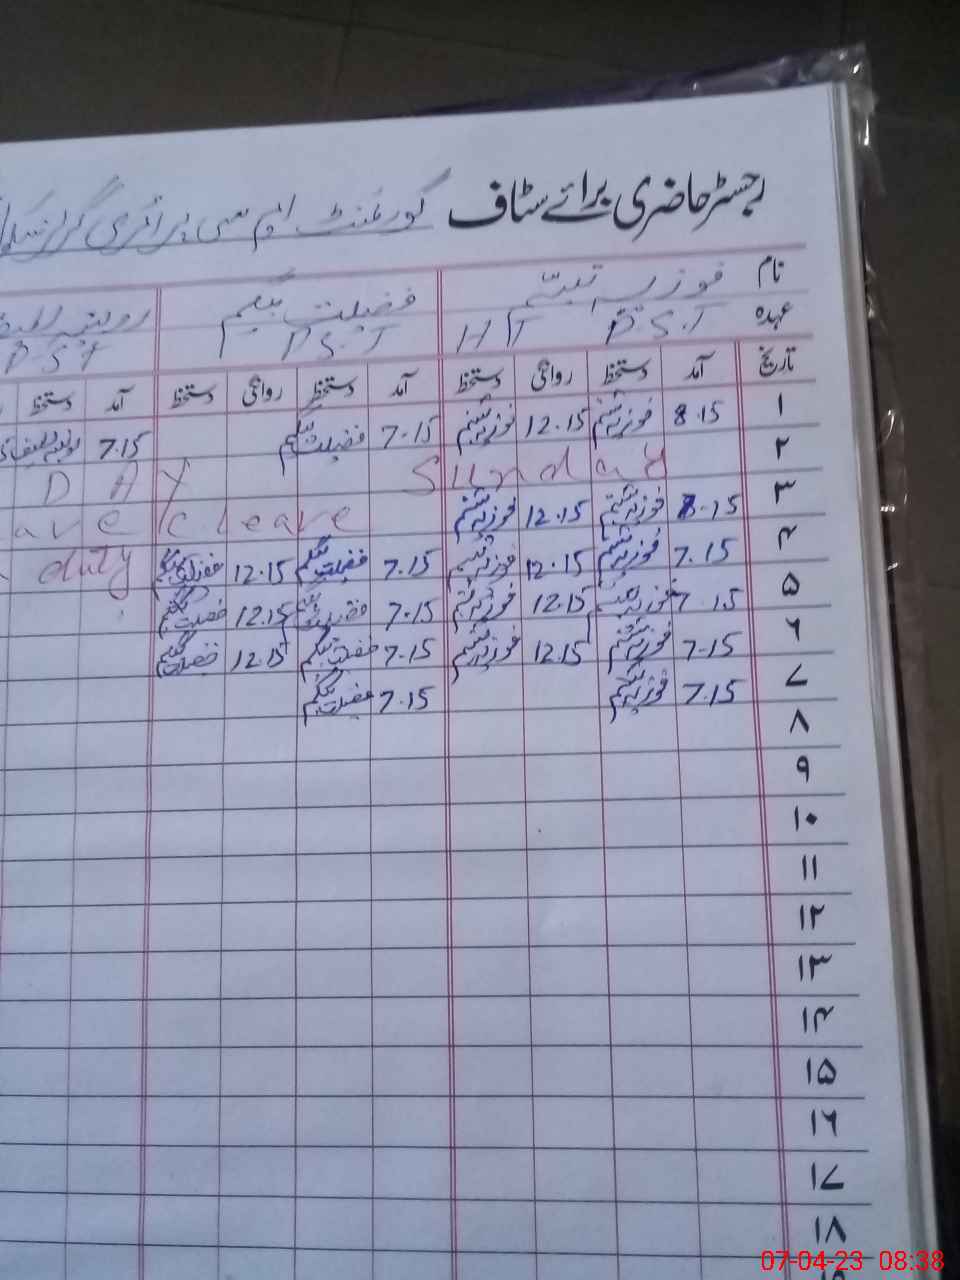 رجسٹر حاضری برائے سٹاف گورنمنٹ ایم سی پرائمری گرلز
نام فوزیہ تبسم فضیلت بیگم
عہدہ P.S.T HT P.S.T P S T
تاریخ آمد دستخط روانگی دستخط آمد دستخط روانگی دستخط آمد دستخط
۱ 8.15 فوزیہ تبسم 12.15 فوزیہ تبسم 7.15 فضیلت بیگم 7.15
۲ Sunday DAY
۳ 8.15 فوزیہ تبسم 12.15 فوزیہ تبسم c leave ave
۴ 7.15 فوزیہ تبسم 12.15 فوزیہ تبسم 7.15 فضیلت بیگم 12.15 فضیلت بیگم duty
۵ 7.15 فوزیہ تبسم 12.15 فوزیہ تبسم 7.15 فضیلت بیگم 12.15 فضیلت بیگم
۶ 7.15 فوزیہ تبسم 12.15 فوزیہ تبسم 7.15 فضیلت بیگم 12.15 فضیلت بیگم
۷ 7.15 فوزیہ تبسم 7.15 فضیلت بیگم
۸
۹
۱۰
۱۱
۱۲
۱۳
۱۴
۱۵
۱۶
۱۷
۱۸
07-04-23 08:38